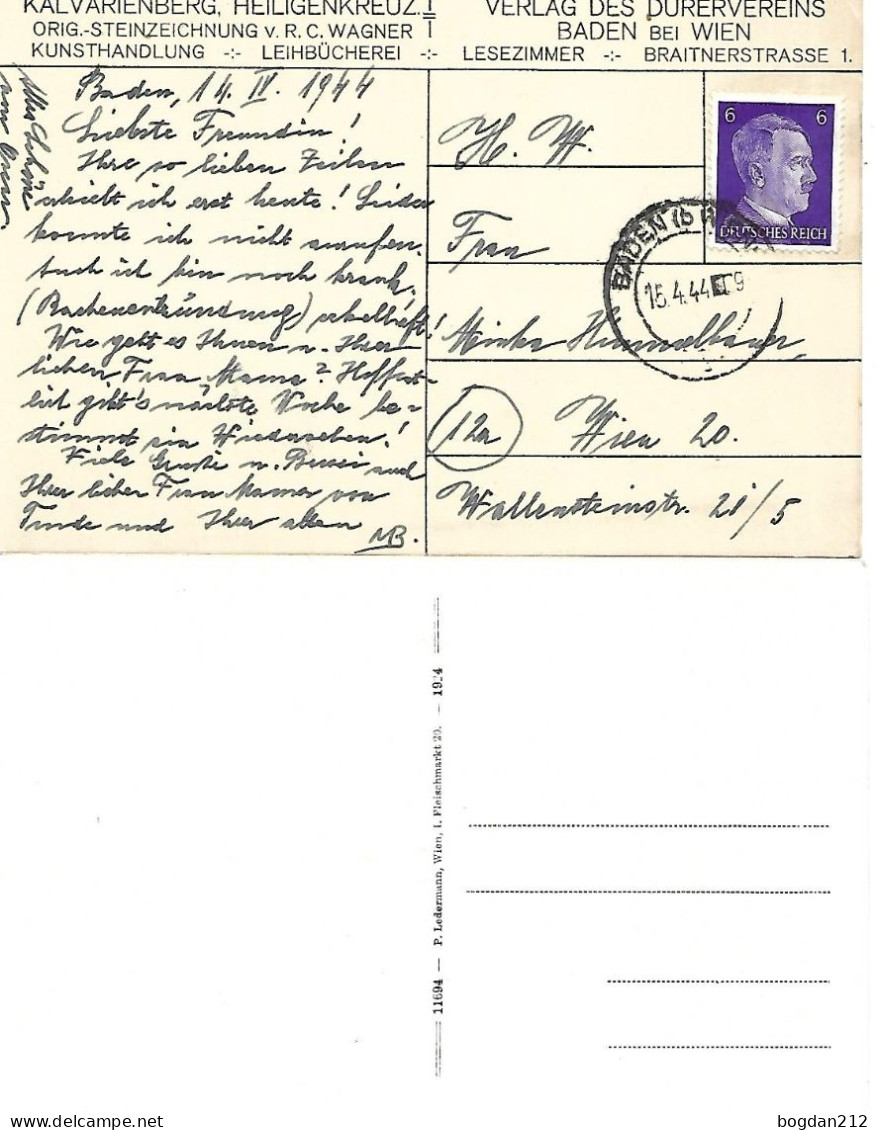 KALVARIENBERG, HEILIGENKREUZ.
ORIG.-STEINZEICHNUNG v. R. C. WAGNER
KUNSTHANDLUNG -:- LEIHBÜCHEREI -:-
VERLAG DES DÜRERVEREINS
BADEN BEI WIEN
LESEZIMMER -:- BRAITNERSTRASSE 1.
Baden, 14. IV. 1944
Liebste Freundin!
Ihre so lieben Zeilen
erhielt ich erst heute! Leider
konnte ich nicht anrufen,
auch ich bin noch krank,
(Rachenentzündung) ekelhaft!
Wie geht es Ihnen u. Ihrer
lieben Frau Mama? Hoffent-
lich gibt's nächste Woche be-
stimmt ein Wiedersehen!
Viele Grüße u. Bussi auch
Ihrer lieben Frau Mama von
und Ihrer alten
MB.
Alles Schöne
H. W.
Frau
Minka Himmelbauer,
12a Wien 20.
Wallensteinstr. 21/5
6 6
DEUTSCHES REICH
BADEN (b
15.4.44 9
11694 — P. Ledermann, Wien, I. Fleischmarkt 20. — 1924
bogdan212